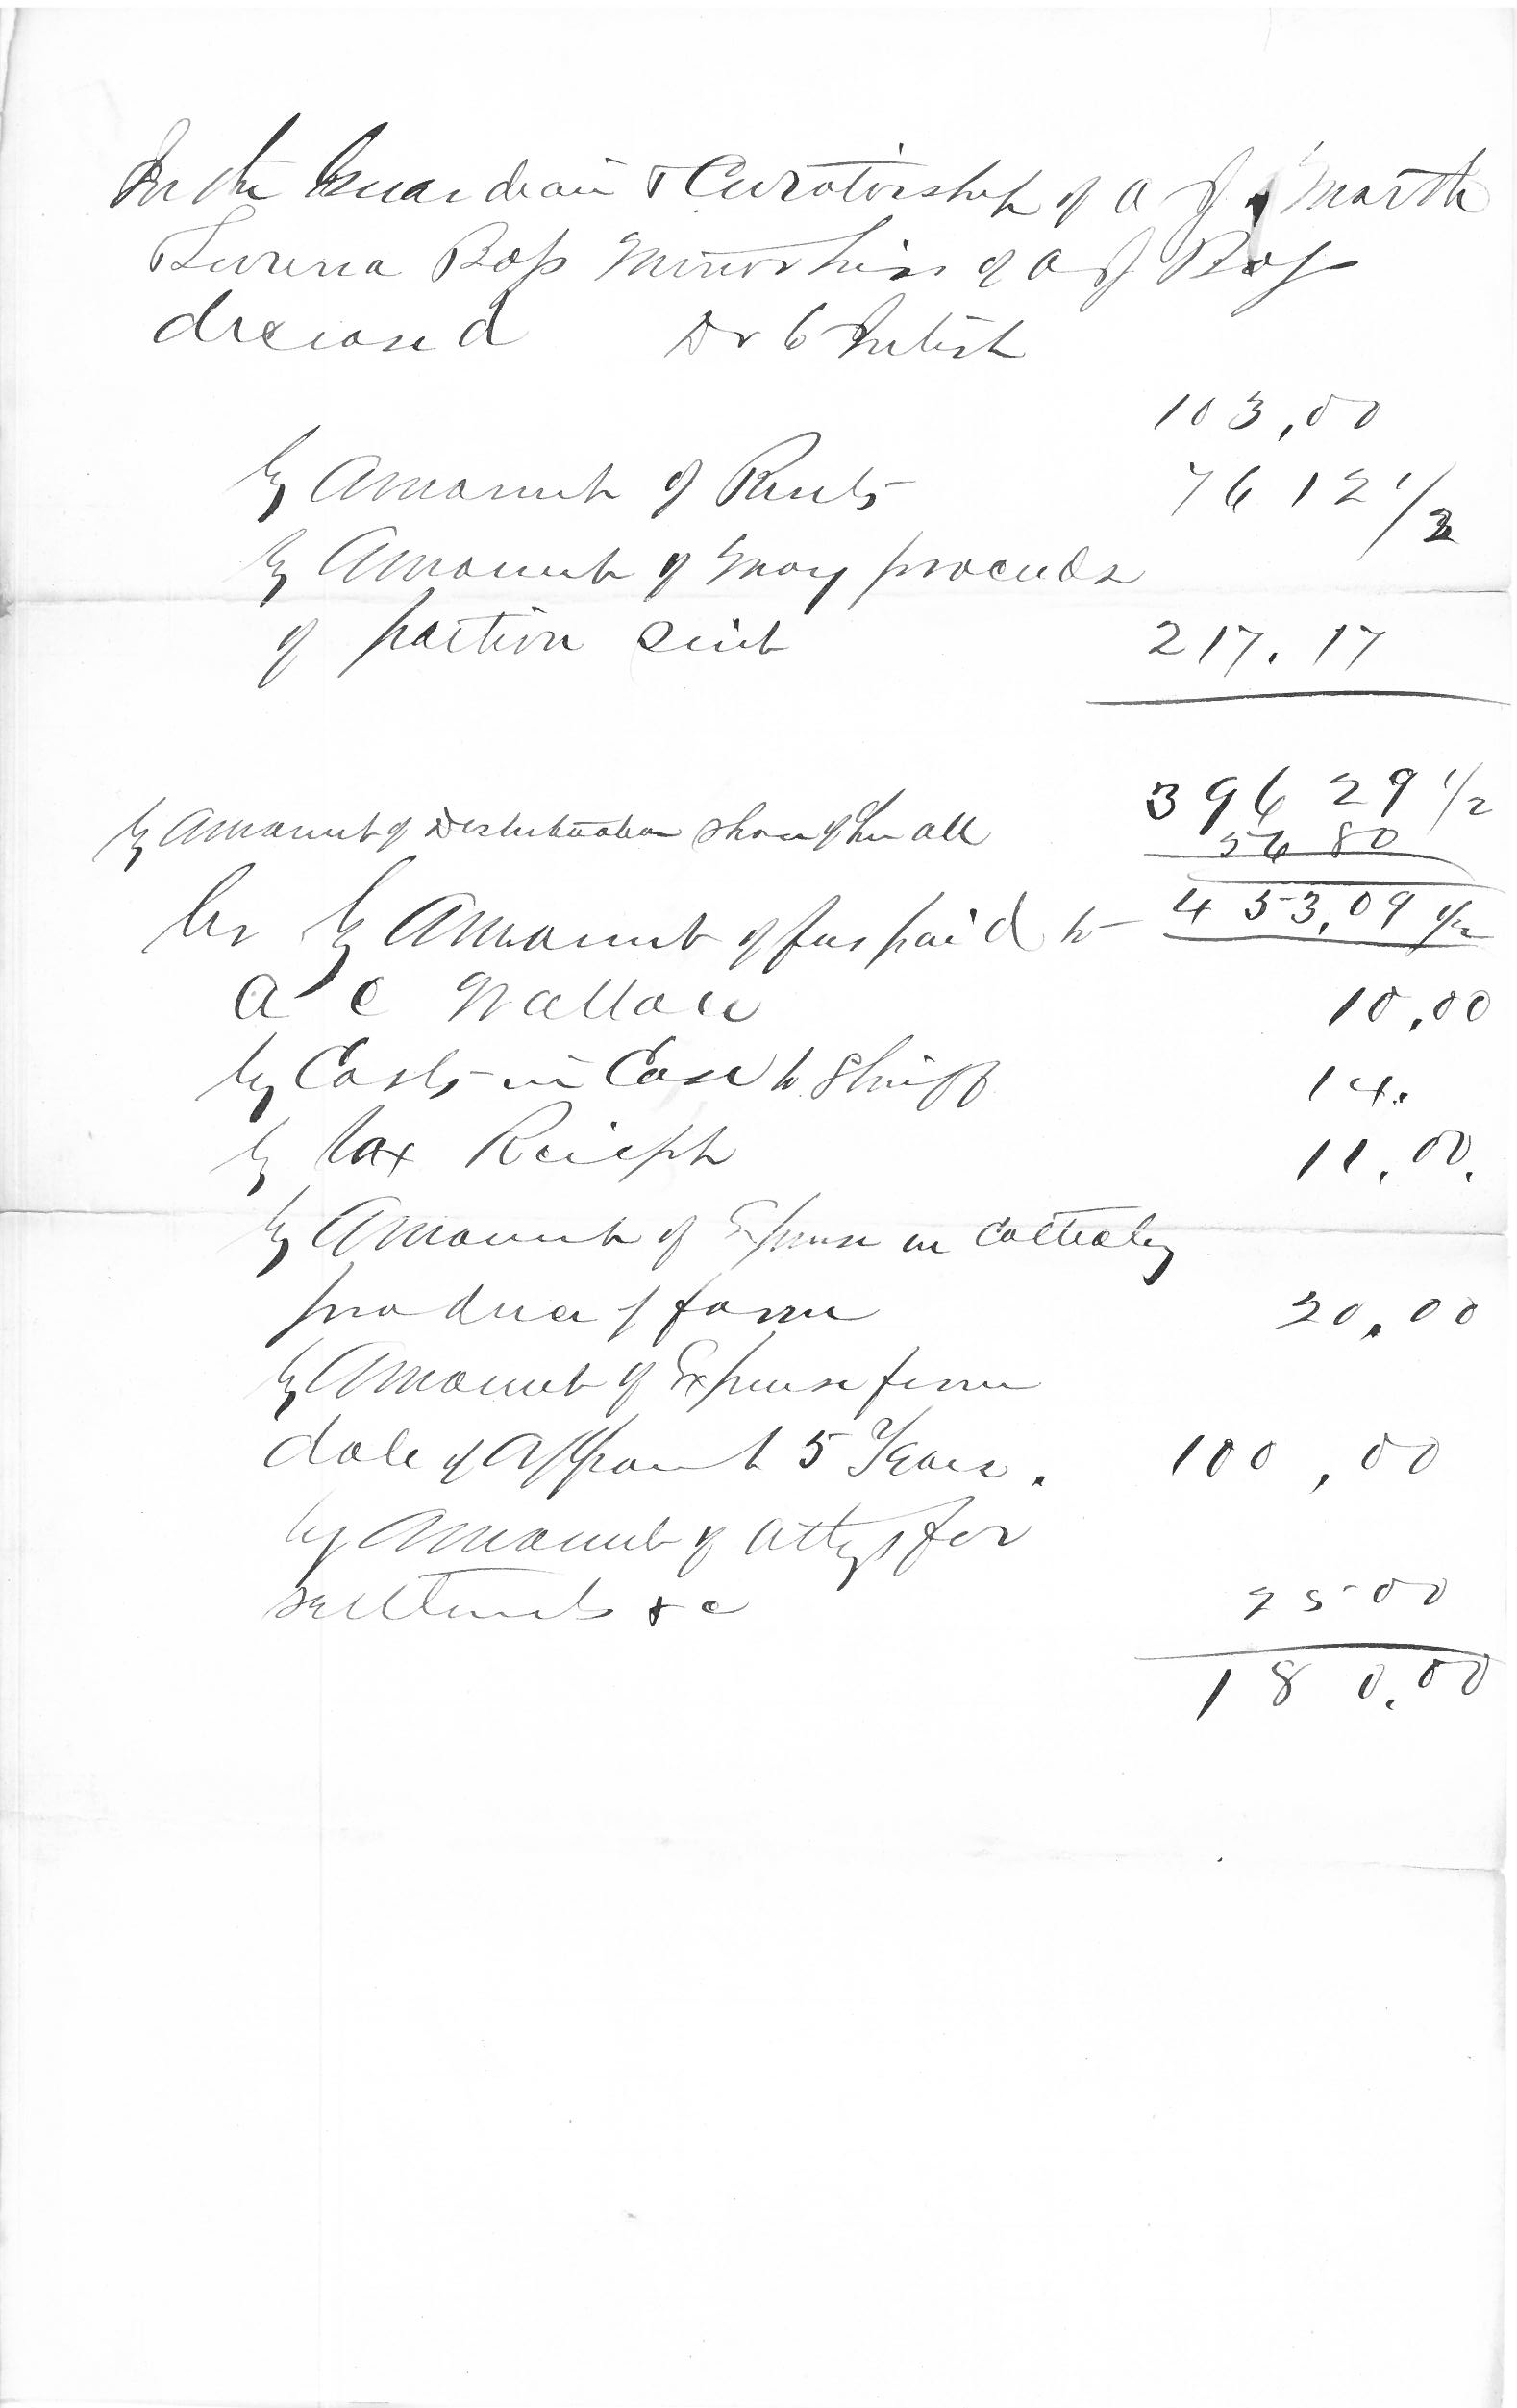 In the Guardian & Curatorship of A J Marth
& Lurena Boss Minor heirs of A J Boss
deceased Dr to Intrest
103,00
by Amount of Rents 76 12 1/2
by Amount of Mony proceeds
of partion Suit 217.17
396 29 1/2
by Amount of Distribution Share of in all 56 80
Cr by Amount of fees paid to 453,09 1/2
A C Wallace 10,00
by Costs in Case to Shriff 14.
by tax Reciept 11,00.
by Amount of Expense in
produce of farm 20,00
by Amount of Expense from
date of Appoint 5 Years. 100,00
by Amount of Attys for
settlements &c 25 00
180,00